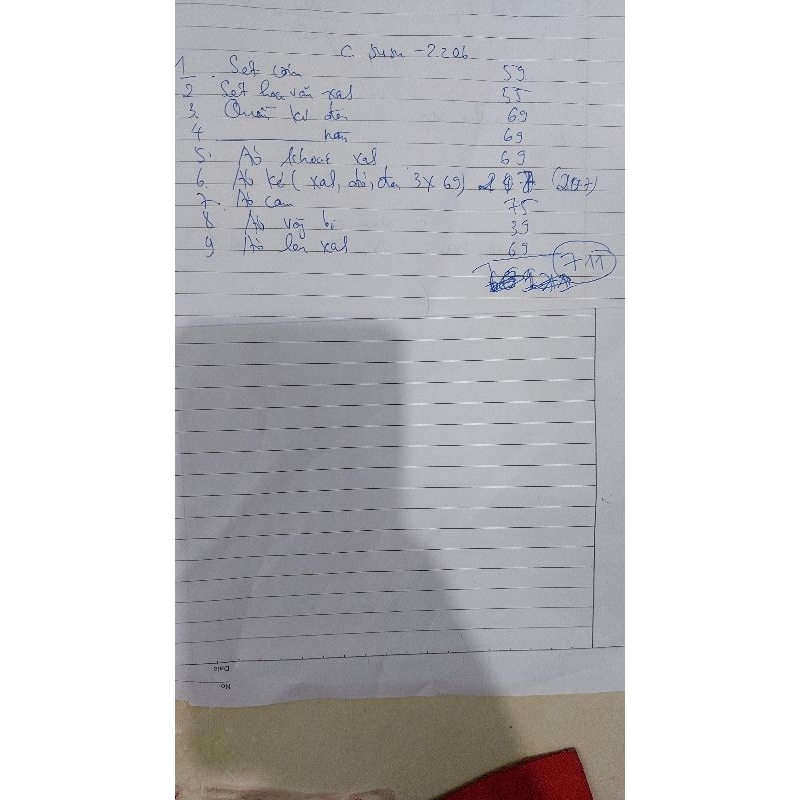 C. Susu - 2.206
1. Set cốm 59
2 Set hoa văn xah 55
3. Quần kẻ đen 69
4 ——— nâu 69
5. Áo khoác xah 69
6. Áo kẻ ( xah, đỏ, đen 3 x 69) 207 (207)
7. Áo cam 75
8 Áo váy bí 39
9 Áo len xah 69
711
No
Date